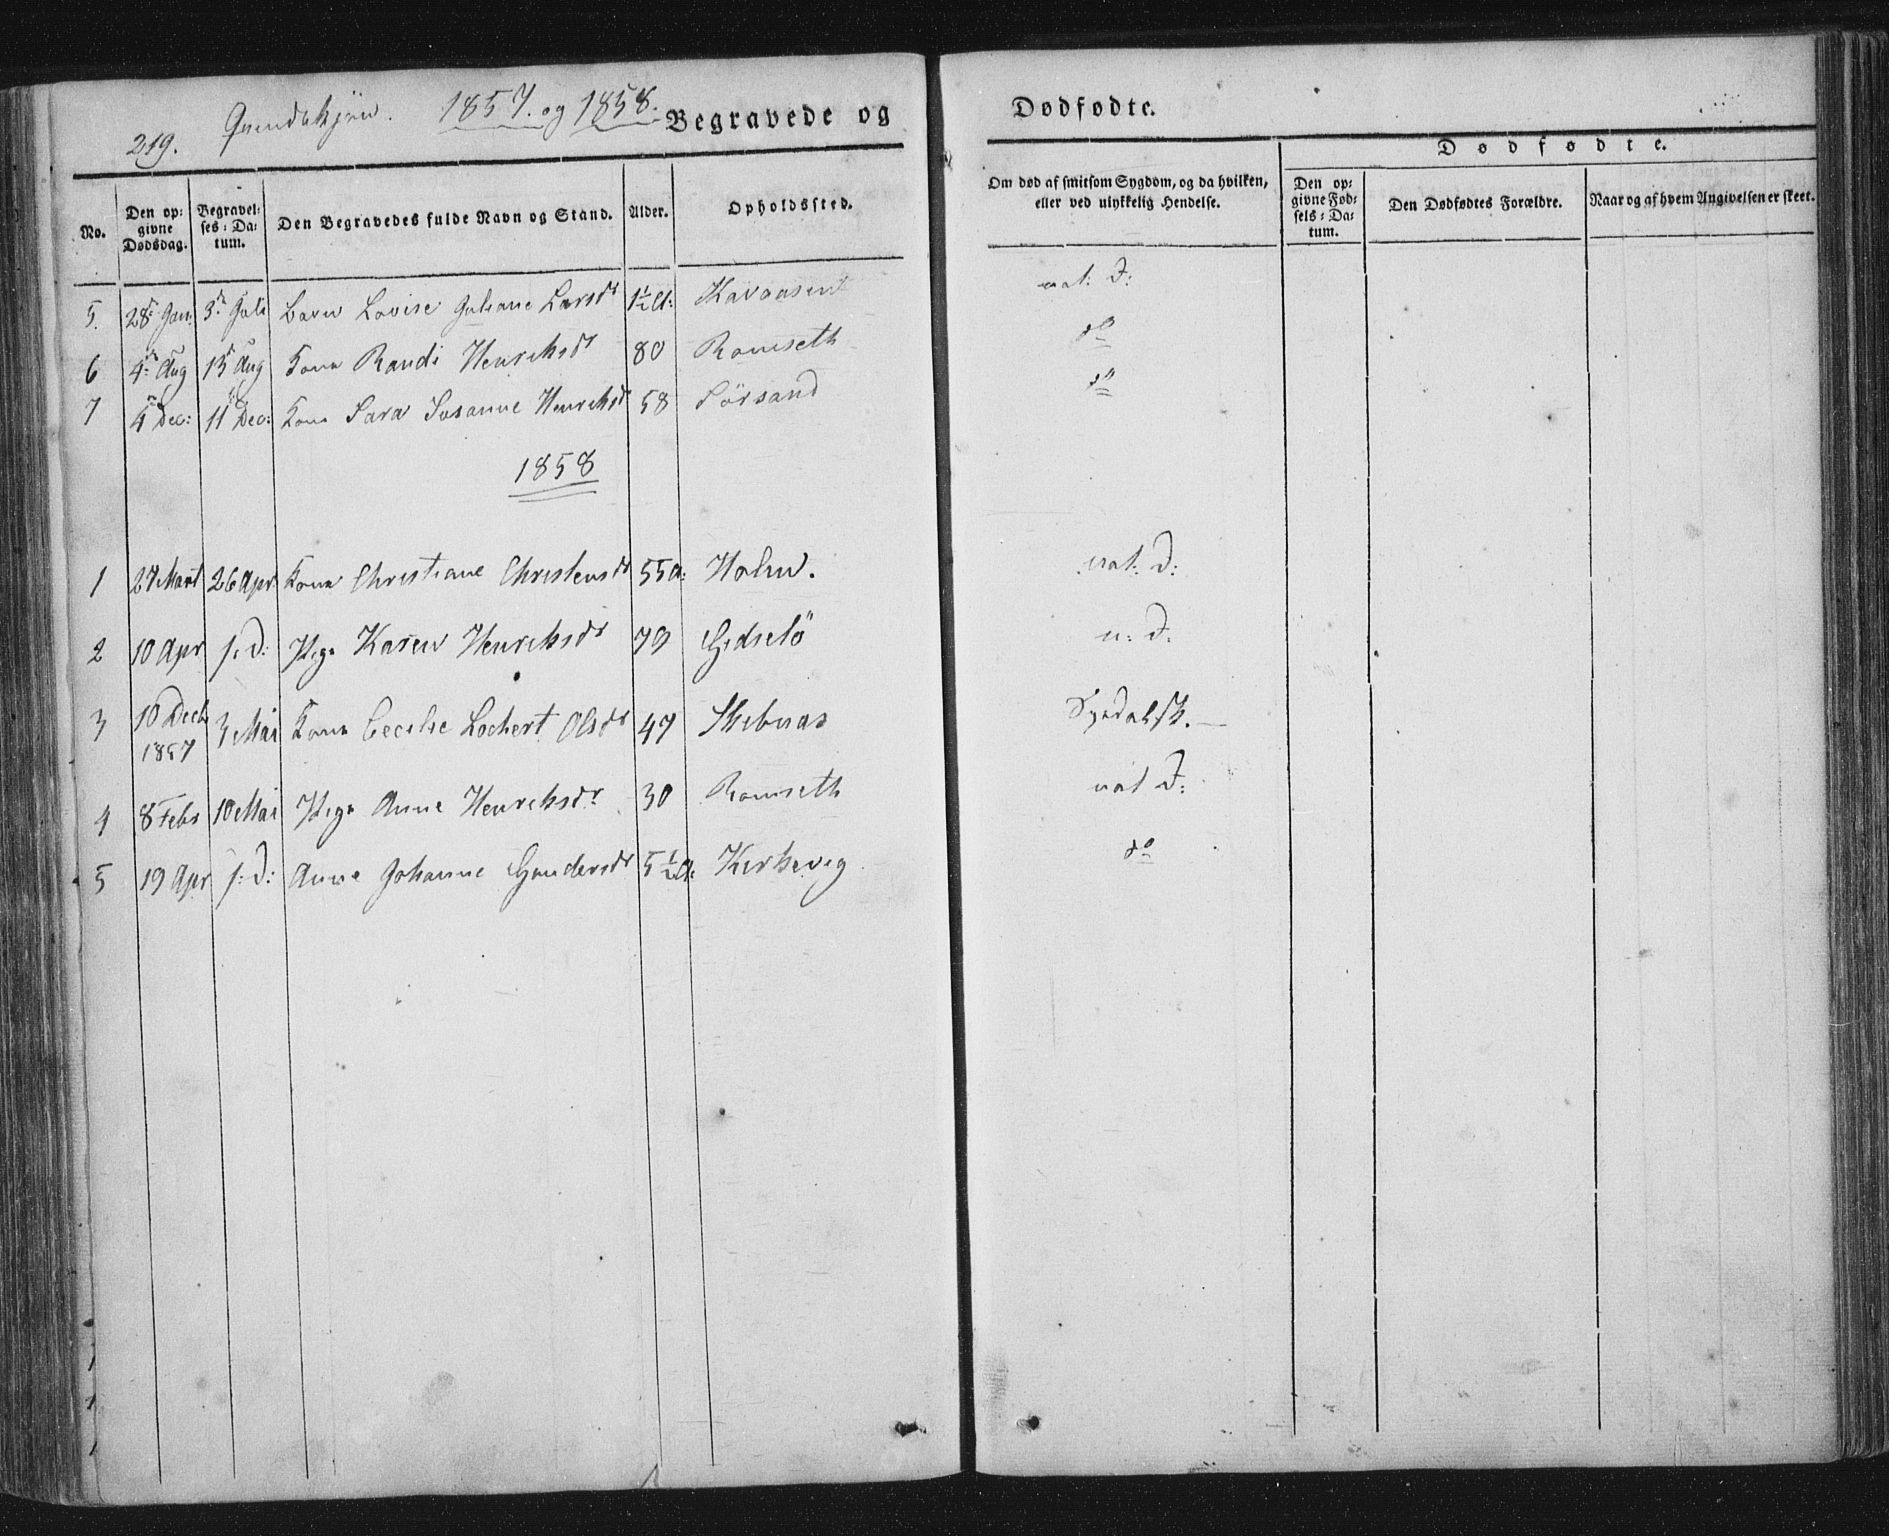 219. Qvindekjön. 1857. og 1858. Begravede og Dødfødte.
No. | Den opgivne Dødsdag. | Begravelses-Datum. | Den Begravedes fulde Navn og Stand. | Alder. | Opholdssted. | Om død af smitsom Sygdom, og da hvilken, eller ved ulykkelig Hendelse. | Dødfødte. | Den opgivne Fødsels-Datum. | Den Dødfødtes Forældre. | Naar og af hvem Angivelsen er skeet.
5. | 28 Jan: | 5 Juli | Barn Lovise Juliane Larsdr | 1½ A: | | nat: D:
6 | 4 Aug | 15 Aug | Kone Randi Henrichsdr | 80 | Ramseth | do
7 | 4 Dec: | 11 Dec: | Kone Sara Susanne Henrichsdr | 58 | Sörsand | do
1858
1 | 27 Mart | 26 Apr | Kone Christiane Christensdr | 55 A: | Holm. | nat: D:
2 | 10 Apr | s: D: | Pige Karen Henrichsdr | 79 | Gidselö | n: D:
3 | 10 Decb 1857 | 3 Mai | Kone Cecilie Lochert Olsdr | 47 | Skibnas |
4 | 8 Febr | 10 Mai | Pige Anne Henrichsdr | 30 | Ramseth | nat D:
5 | 19 Apr | s: D: | Anne Johanne Gundersdr | 5½ A: | Kirkevig | do